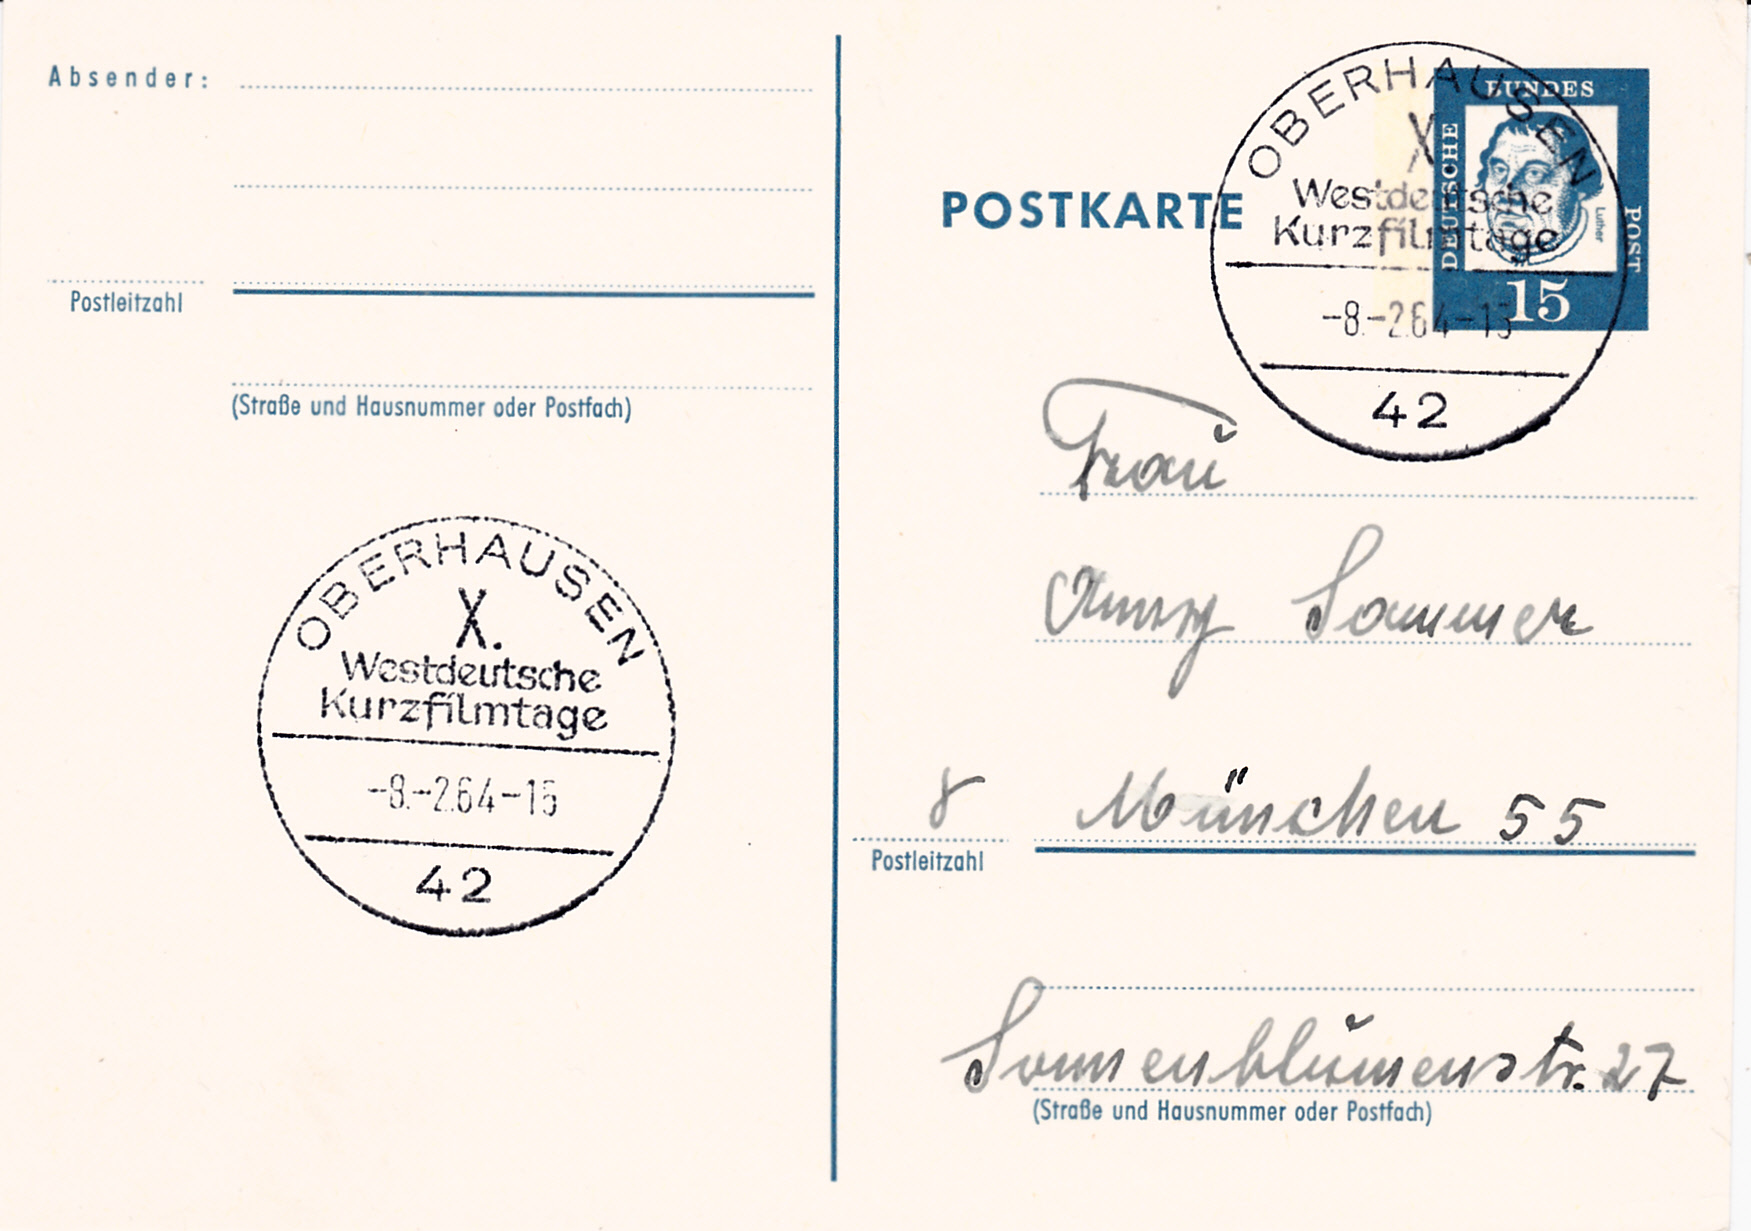 Absender:
Postleitzahl
(Straße und Hausnummer oder Postfach)
OBERHAUSEN
X.
Westdeutsche
Kurzfilmtage
-8.-2.64-15
42
POSTKARTE
DEUTSCHE
BUNDES
POST
Luther
15
OBERHAUSEN
X.
Westdeutsche
Kurzfilmtage
-8.-2.64-13
42
Frau
Anny Sommer
8 München 55
Postleitzahl
Sonnenblumenstr. 27
(Straße und Hausnummer oder Postfach)